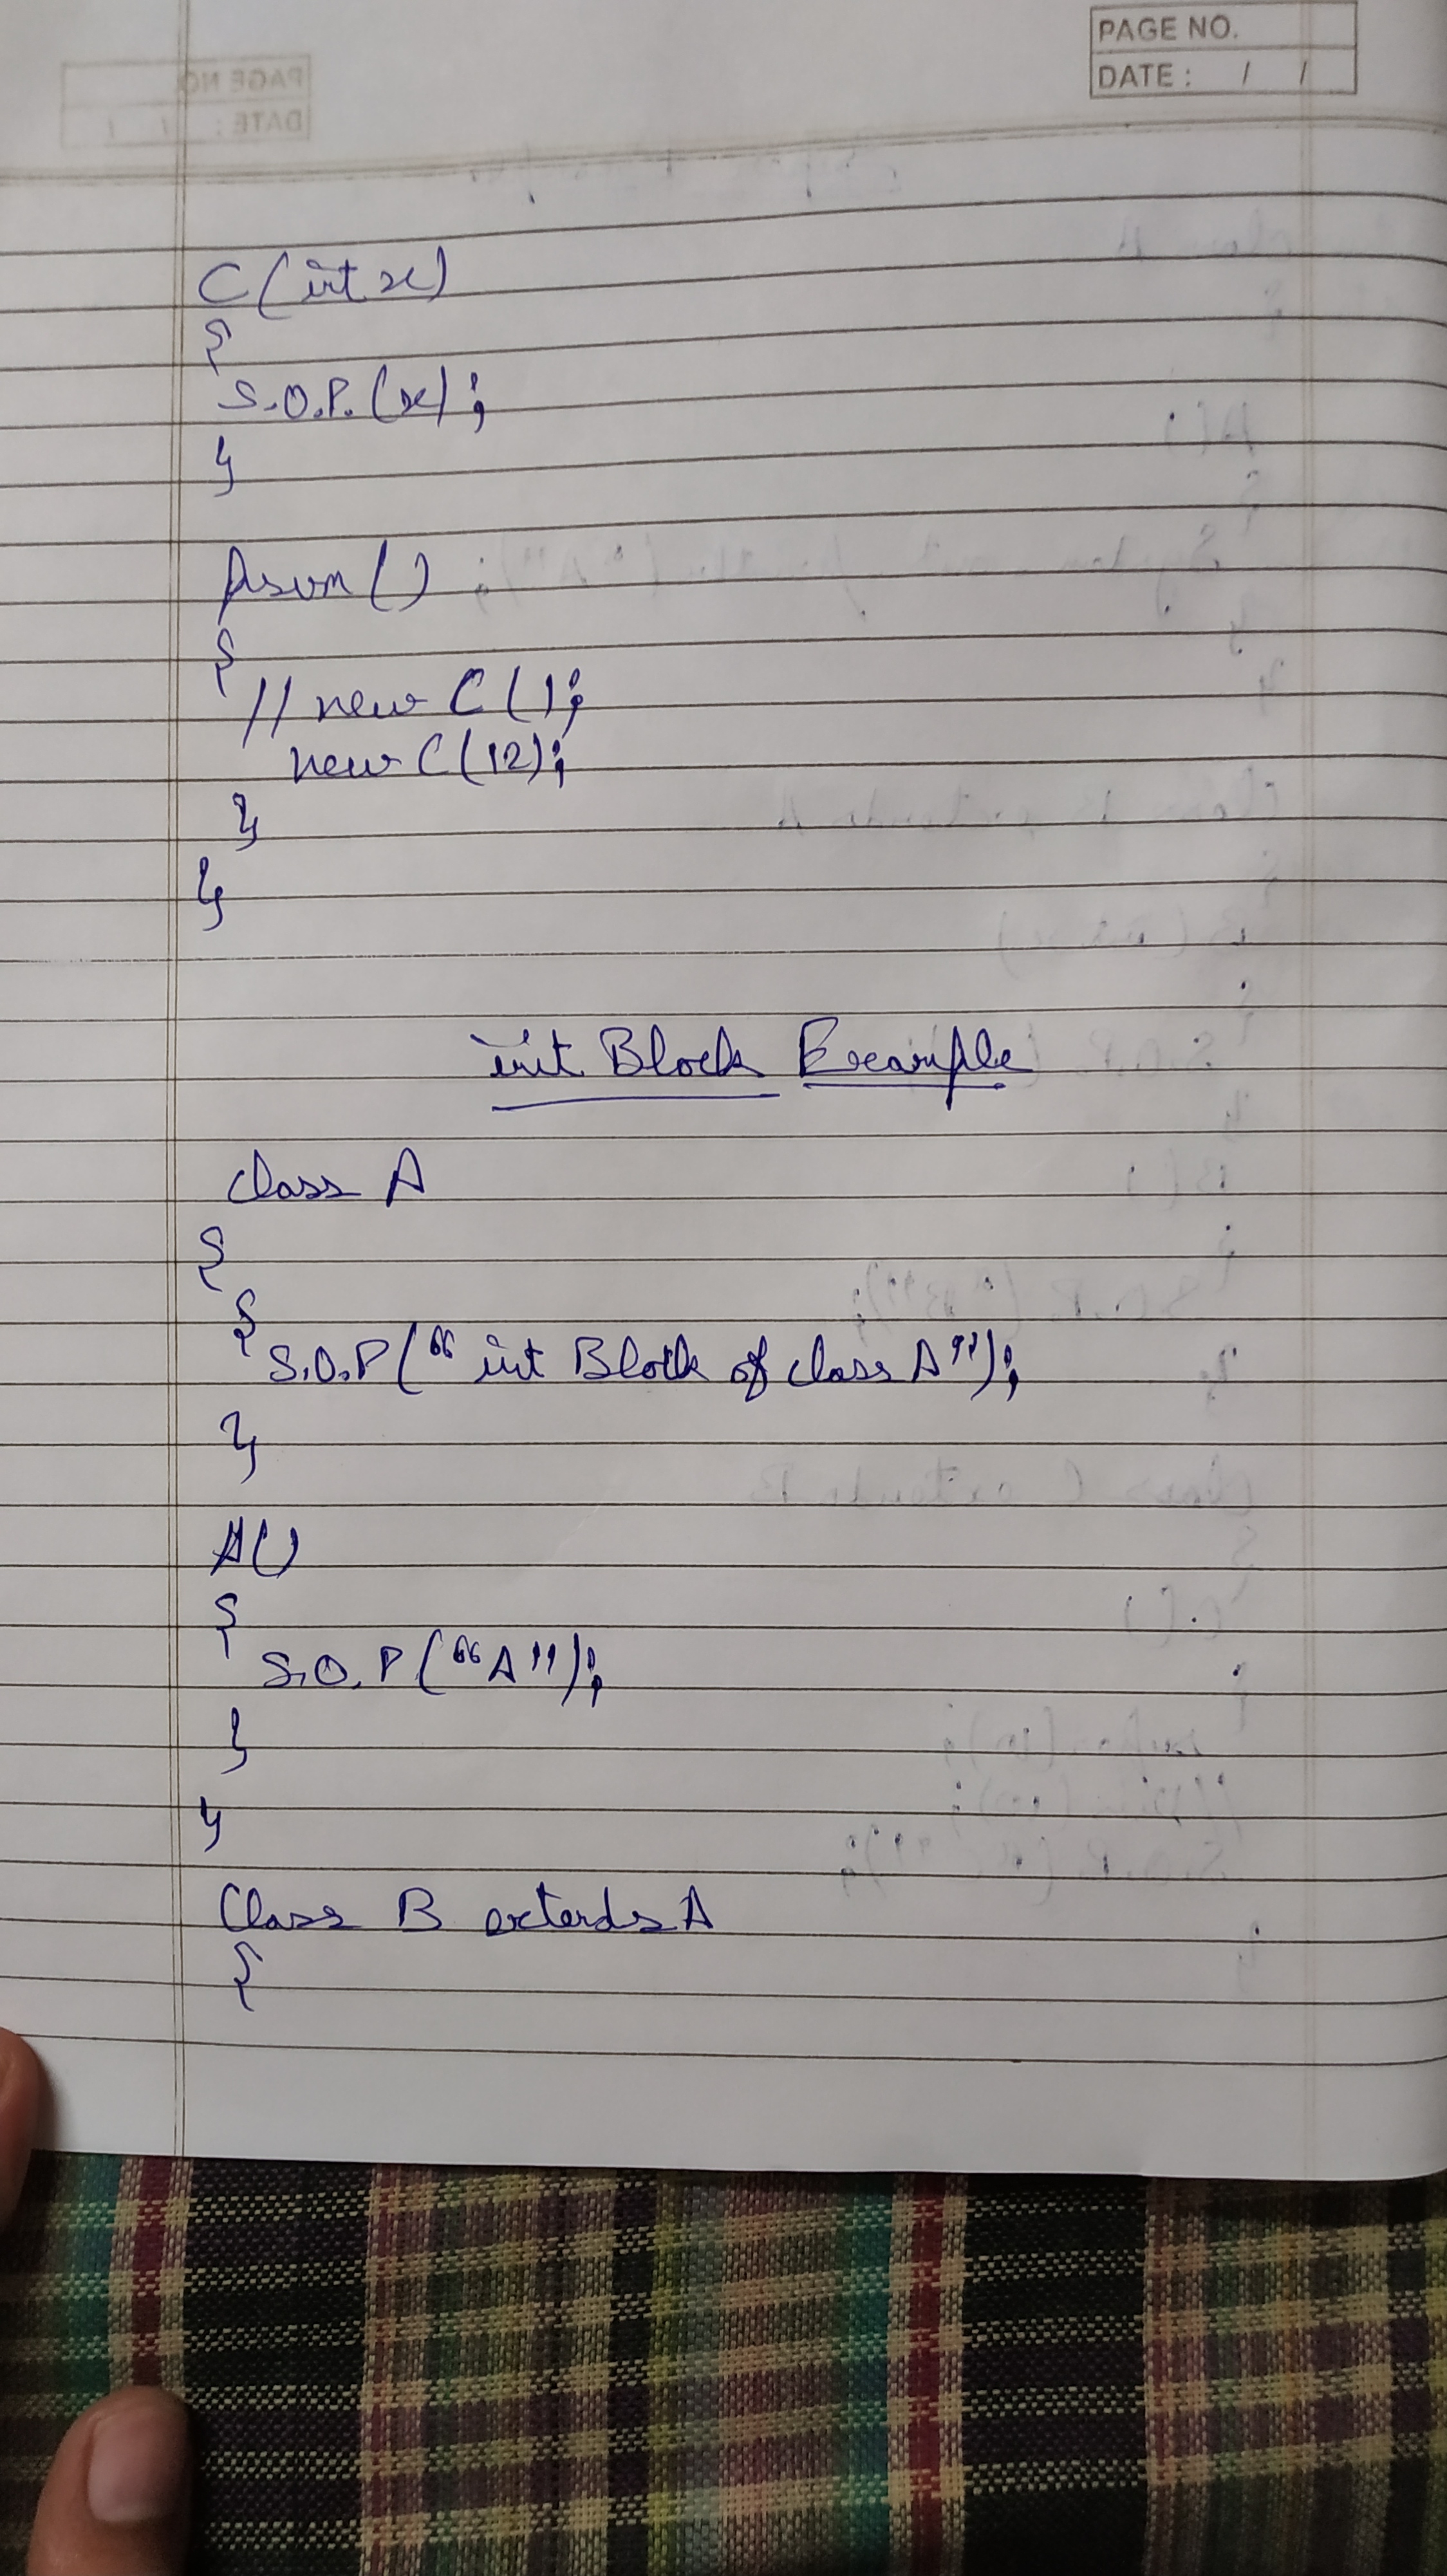 PAGE NO.
DATE : / /
C (int x)
{
S.O.P. (x);
}
psvm ()
{
// new C ();
new C (12);
}
}
init Block Example
class A
{
{
S.O.P (“ init Block of class A”);
}
A()
{
S.O.P (“A”);
}
}
Class B extends A
{